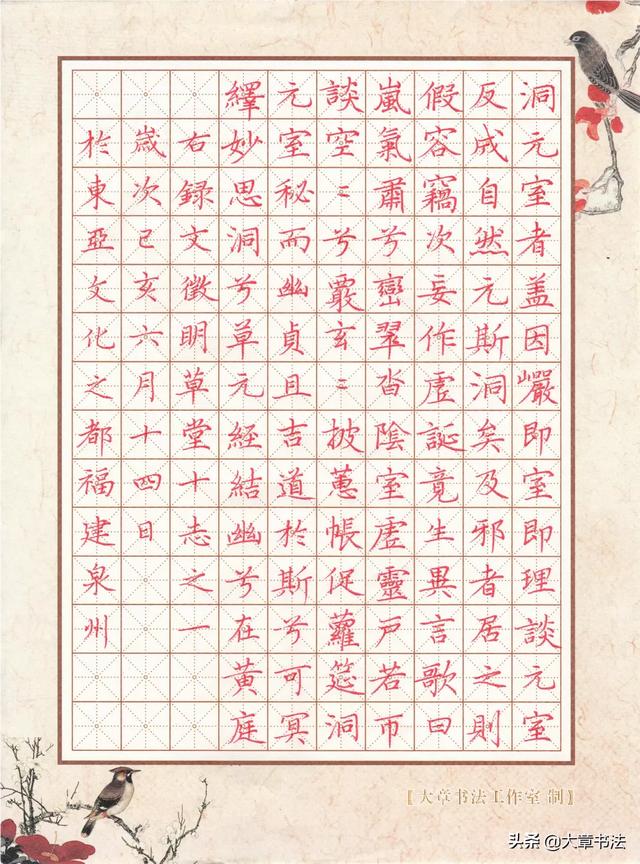 洞元室者盖因巖即室即理談元室
反成自然元斯洞矣及邪者居之則
假容竊次妄作虛誕竟生異言歌曰
嵐氣肅兮巒翠沓陰室虛靈戶若帀
談空〻兮覈玄〻披蕙帳促蘿筵洞
元室秘而幽貞且吉道於斯兮可冥
繹妙思洞兮草元經結幽兮在黃庭
右録文徵明草堂十志之一
歲次已亥六月十四日
於東亞文化之都福建泉州
〖大章书法工作室 制〗
头条 @大章书法